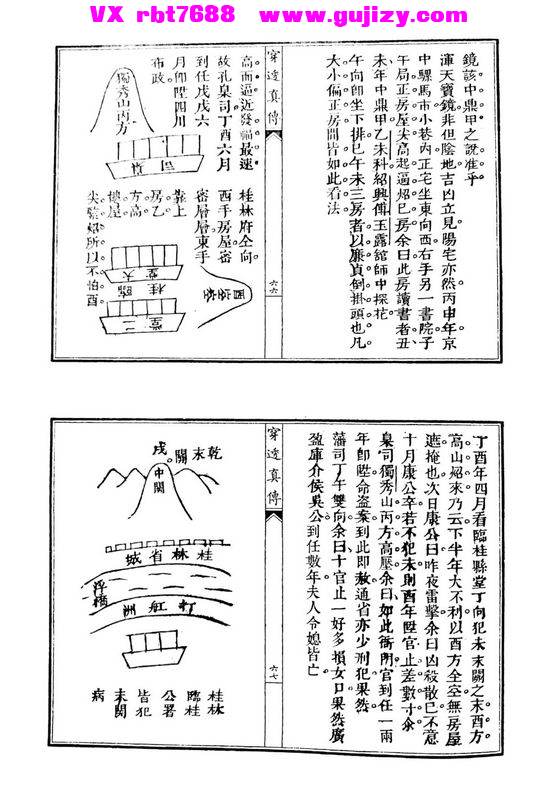 VX rbt7688 www.gujizy.com
鏡該中鼎甲之說准乎
渾天寶鏡非但陰地吉凶立見陽宅亦然丙申年京
中騾馬市小巷內正宅坐東向西右手另一書院子
午局正房屋尖高起逼炤巳房余曰此房讀書者丑
未年中鼎甲乙未科紹興傅玉露舘師中探花
午向卽坐下排巳午未三房者以廉貞倒掛頭也凡
大小偏正房間皆如此看法
穿透真傳
六六
高而逼近發福最速
故孔臬司丁酉六月
到任戊戌六
月卽陞四川
布政
獨秀山丙方
司
桂林府仝向
西手房屋密
密層層東手
靠上
房乙
方高
樓屋
尖監炤所以不怕酉
大堂
臨桂
二堂
丁酉年四月看臨桂縣堂丁向犯未末關之末酉方
高山炤來乃云下半年大不利以酉方全空無房屋
遮掩也次日康公曰昨夜雷擊余曰凶殺散已不意
十月康公卒若不犯未則酉年陞官止差數寸余
臬司獨秀山丙方高壓余曰如此衙門官到任一兩
年卽陞命盜案到此卽赦通省亦少刑犯果然
藩司丁午雙向余曰十官止一好多損女口果然廣
盈庫介侯吳公到任數年夫人令媳皆亡
穿透真傳
六七
乾末關
戌
中関
桂林省城
浮橋
打舡洲
桂林
臨桂
公署
皆犯
末関
病